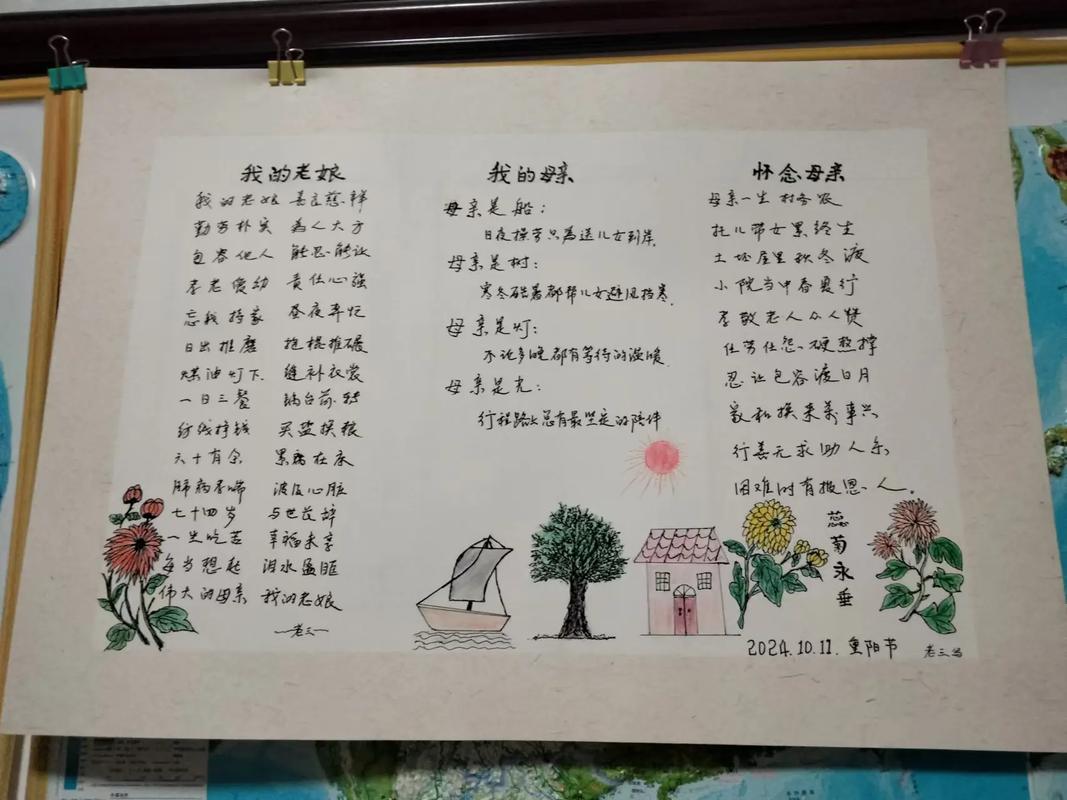 我的老娘
我的老娘 善良慈祥
勤劳朴实 为人大方
包容他人 能忍能让
孝老爱幼 责任心强
忘我持家 昼夜奔忙
日出推磨 抱棍推碾
煤油灯下 缝补衣裳
一日三餐 锅台前转
纺线挣钱 买盐换粮
六十有余 累病在床
肺病哮喘 波及心脏
七十四岁 与世长辞
一生吃苦 幸福未享
每当想起 泪水盈眶
伟大的母亲 我的老娘
老三
我的母亲
母亲是船:
日夜操劳只为送儿女到岸,
母亲是树:
寒冬酷暑都帮儿女避风挡寒,
母亲是灯:
不论多晚都有等待的温暖
母亲是光:
行程路上总有最坚定的陪伴
怀念母亲
母亲一生村务农
托儿带女累终生
土坯屋里秋冬渡
小院当中春夏行
孝敬老人众人赞
任劳任怨硬熬撑
忍让包容渡日月
家和换来万事兴
行善无求助人乐
困难时有报恩人。
蕊菊永垂
2024.10.11. 重阳节
老三